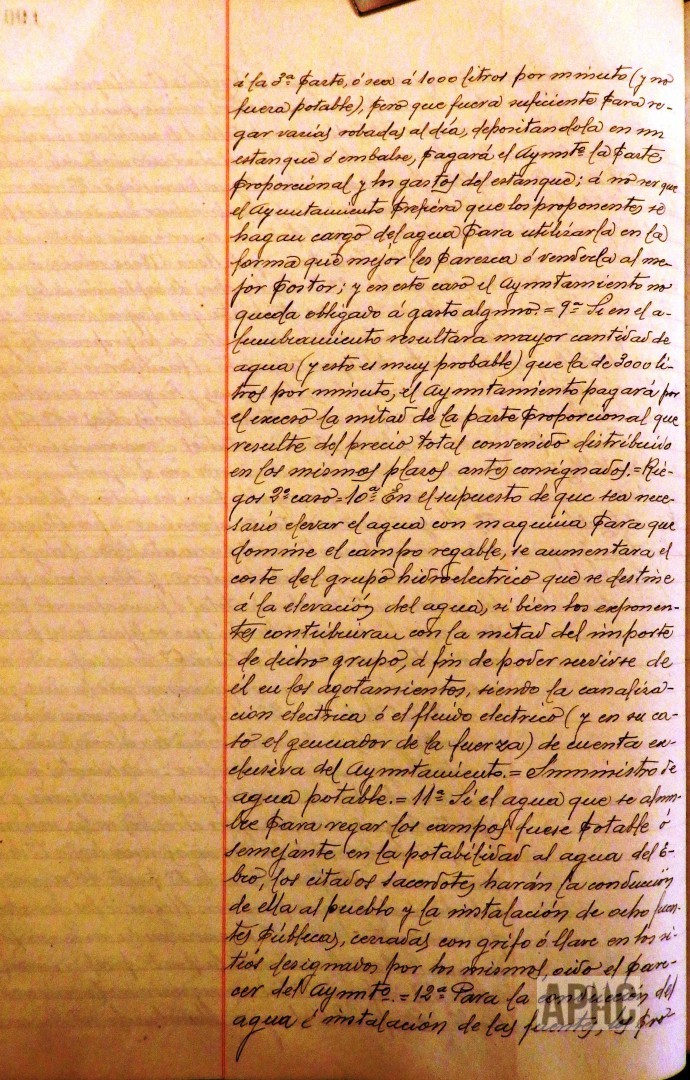 á la 3ª parte, ó sea á 1000 litros por minuto (y no
fuera potable), pero que fuera suficiente para re-
gar varias robadas al día, depositandola en un
estanque ó embalse, pagará el Aymtº la parte
proporcional y los gastos del estanque; á no ser que
el Ayuntamiento prefiera que los proponentes se
hagan cargo del agua para utilizarla en la
forma que mejor les paresca ó venderla al me-
jor postor; y en este caso el Ayuntamiento no
queda obligado á gasto alguno.= 9ª Si en el a-
lumbramiento resultara mayor cantidad de
agua (y esto es muy probable) que la de 3000 li-
tros por minuto, el Ayuntamiento pagará por
el exceso la mitad de la parte proporcional que
resulte del precio total convenido distribuido
en los mismos plasos antes consignados.= Rie-
gos 2º caso = 10ª En el supuesto de que sea nece-
sario elevar el agua con maquina para que
domine el campo regable, se aumentara el
coste del grupo hidroelectrico que se destine
á la elevación del agua, si bien los exponen-
tes contribuiran con la mitad del importe
de dicho grupo, á fin de poder servirse de
él en los agotamientos, siendo la canaliza-
ción electrica ó el fluido electrico (y en su ca-
so el genciador de la fuerza) de cuenta ex-
clusiva del Ayuntamiento.= Suministro de
agua potable.= 11ª Si el agua que se alum-
bre para regar los campos fuese potable ó
semejante en la potabilidad al agua del E-
bro, los citados sacerdotes harán la conducción
de ella al pueblo y la instalación de ocho fuen-
tes públicas, cerradas con grifo ó llave en los si-
tios designados por los mismos, oido el pare-
cer del Aymtº.= 12ª Para la conducción del
agua é instalación de las fuentes, los pro
APHC